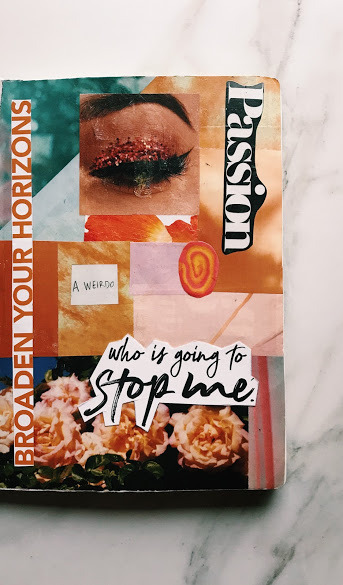 BROADEN YOUR HORIZONS
Passion
A WEIRDO
who is going to
Stop me.